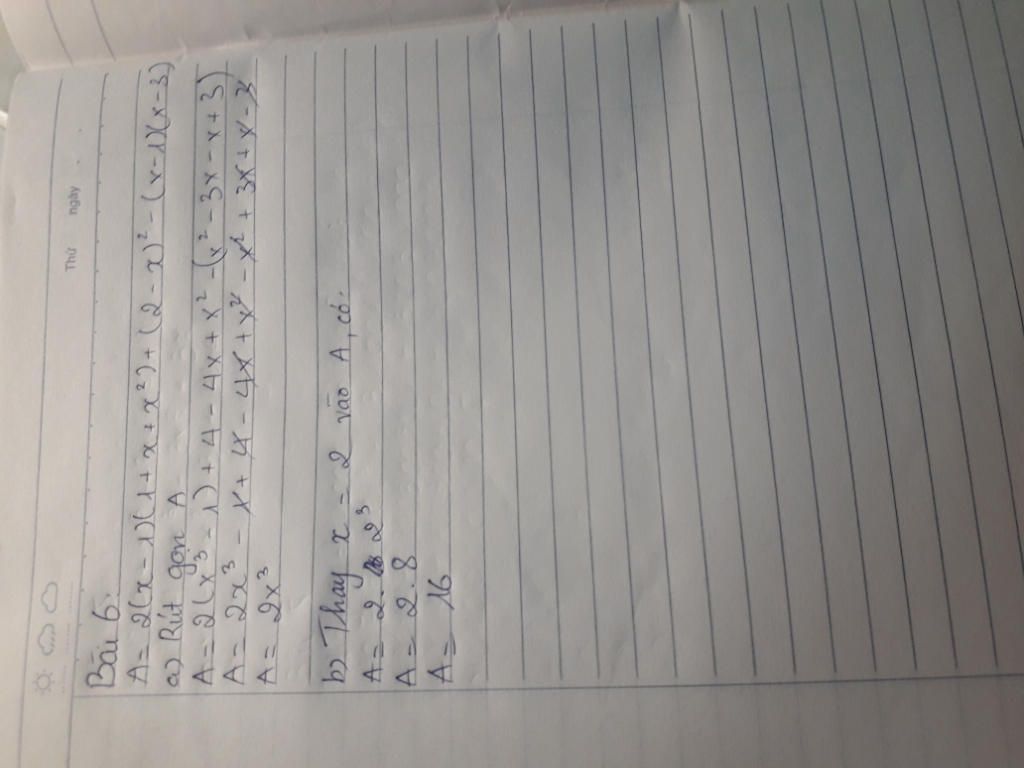 Thứ ngày
Bài 6:
A = 2(x - 1)(1 + x + x²) + (2 - x)² - (x - 1)(x - 3)
a) Rút gọn A
A = 2(x³ - 1) + 4 - 4x + x² - (x² - 3x - x + 3)
A = 2x³ - 1 + 4 - 4x + x² - x² + 3x + x - 3
A = 2x³
b) Thay x = 2 vào A, có:
A = 2. 2³
A = 2.8
A = 16